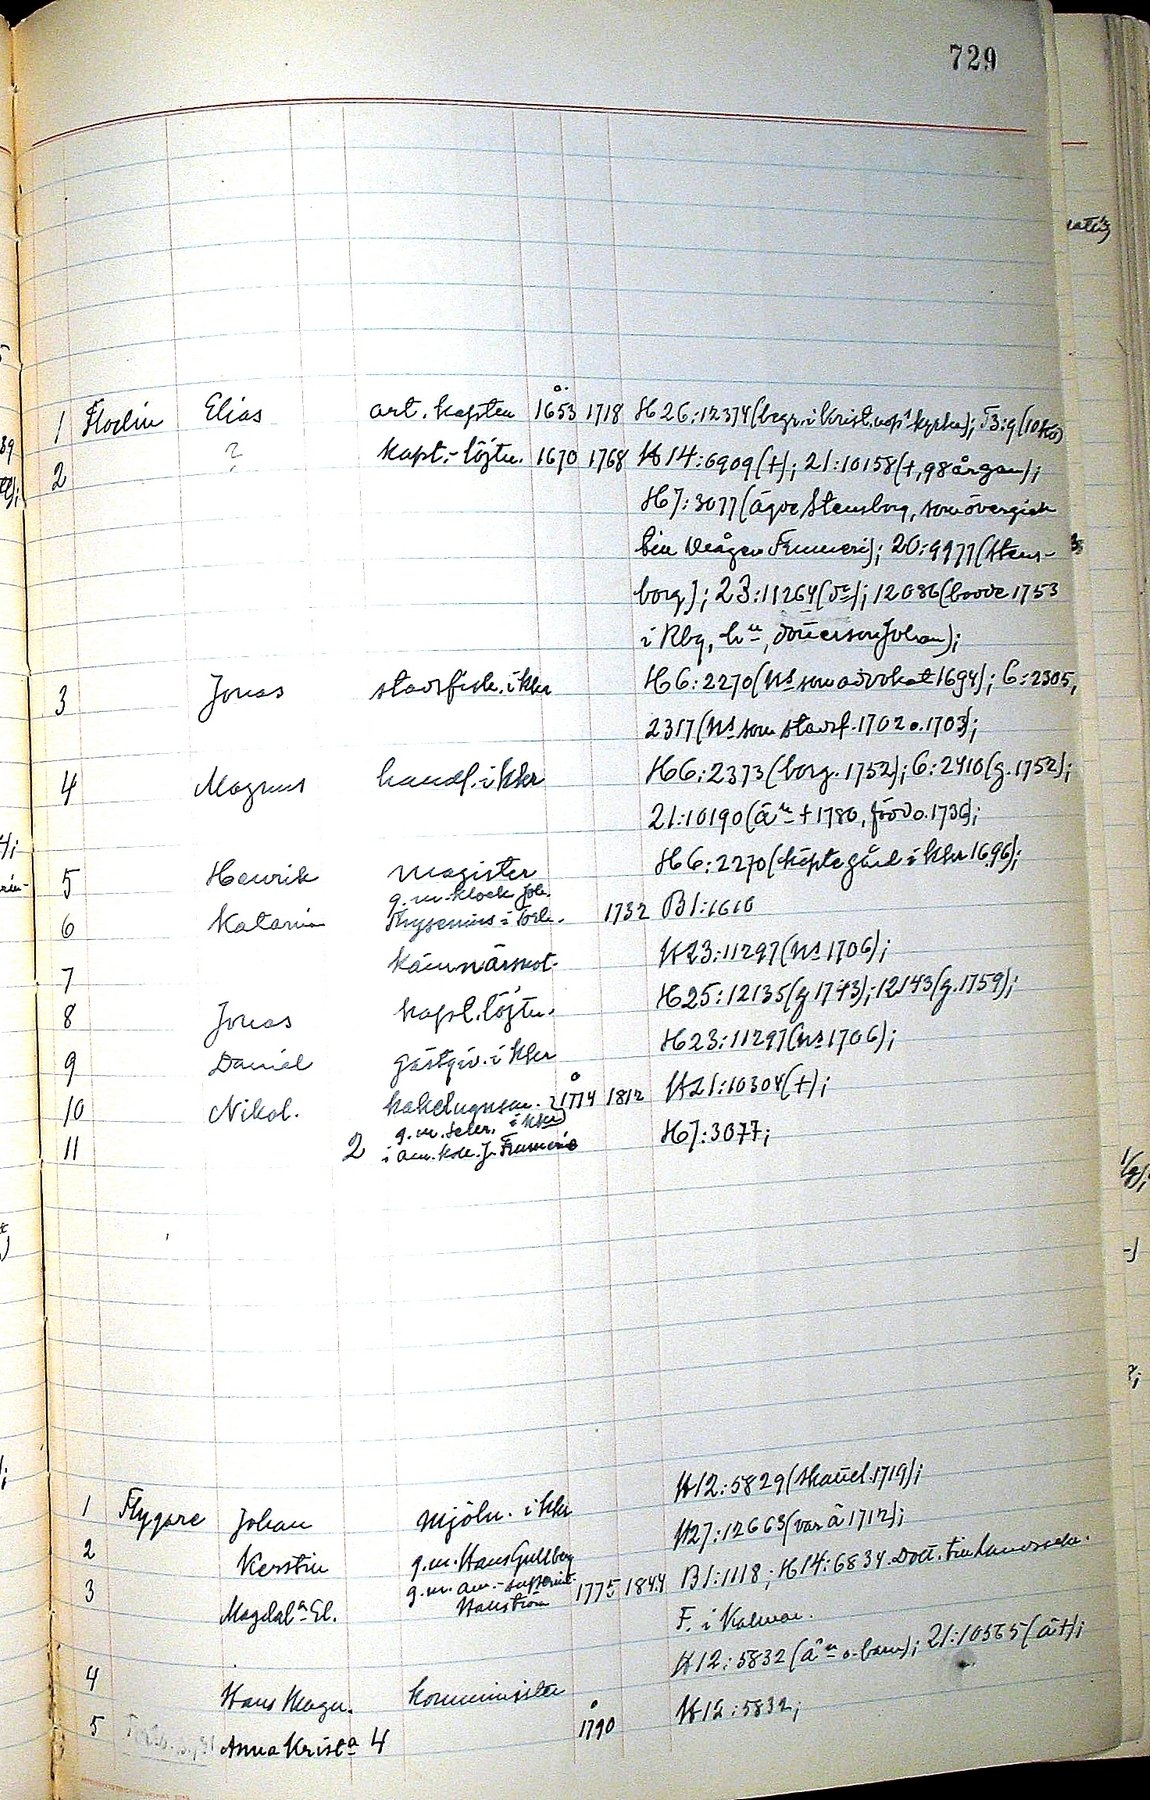 729
1 Flodin Elias art. kapten 1653 1718 H26:12374(begr. i Krist.nop:s kyrka); F3:9(10 Kö)
2 ? kapt.-löjtn. 1670 1768 H14:6909(†); 21:10158(†, 98 år gam);
H7:3077(ägde Stensborg, som övergick
till mågen Frumeri); 20:9977(Stens-
borg); 23:11264(do); 12086(bodde 1753
i Rbg, hu, dotterson Johan);
3 Jonas stadsfisk. i Kkr H6:2270(ns som advokat 1694); 6:2305,
2317(ns som stadsf. 1702 o. 1703);
4 Magnus handl. i Kkr H6:2373(borg. 1752); 6:2410(g. 1752);
21:10190(än † 1780, född o. 1736);
5 Henrik magister H6:2270(köpte gård i Kkr 1696);
g. m. klock Joh.
6 Katarina i Torh. 1732 B1:1610
7 kämnärsrot. H23:11297(ns 1706);
8 Jonas kapt. löjtn. H25:12135(g 1743); 12143(g. 1759);
9 Daniel gästgiv. i Kkr H23:11297(ns 1706);
10 Nikol. kakelugnsm. 1774 1812 H21:10304(†);
g. m. i Kkr
11 2 i am. koll. J. Frumerie H7:3077;
1 Flygare Johan mjöln. i Kkr H12:5829(skattel. 1719);
2 Kerstin g. m. Hans Gullberg H27:12663(var ä 1712);
3 Magdala El. g. m. am.-supperint. 1775 1844 B1:1118; H14:6834. Dott. till landssekr.
Hallström F. i Kalmar.
4 Hans Magn. komminister H12:5832(än o. barn); 21:10565(ä†);
5 Anna Krista 4 1790 H12:5832;